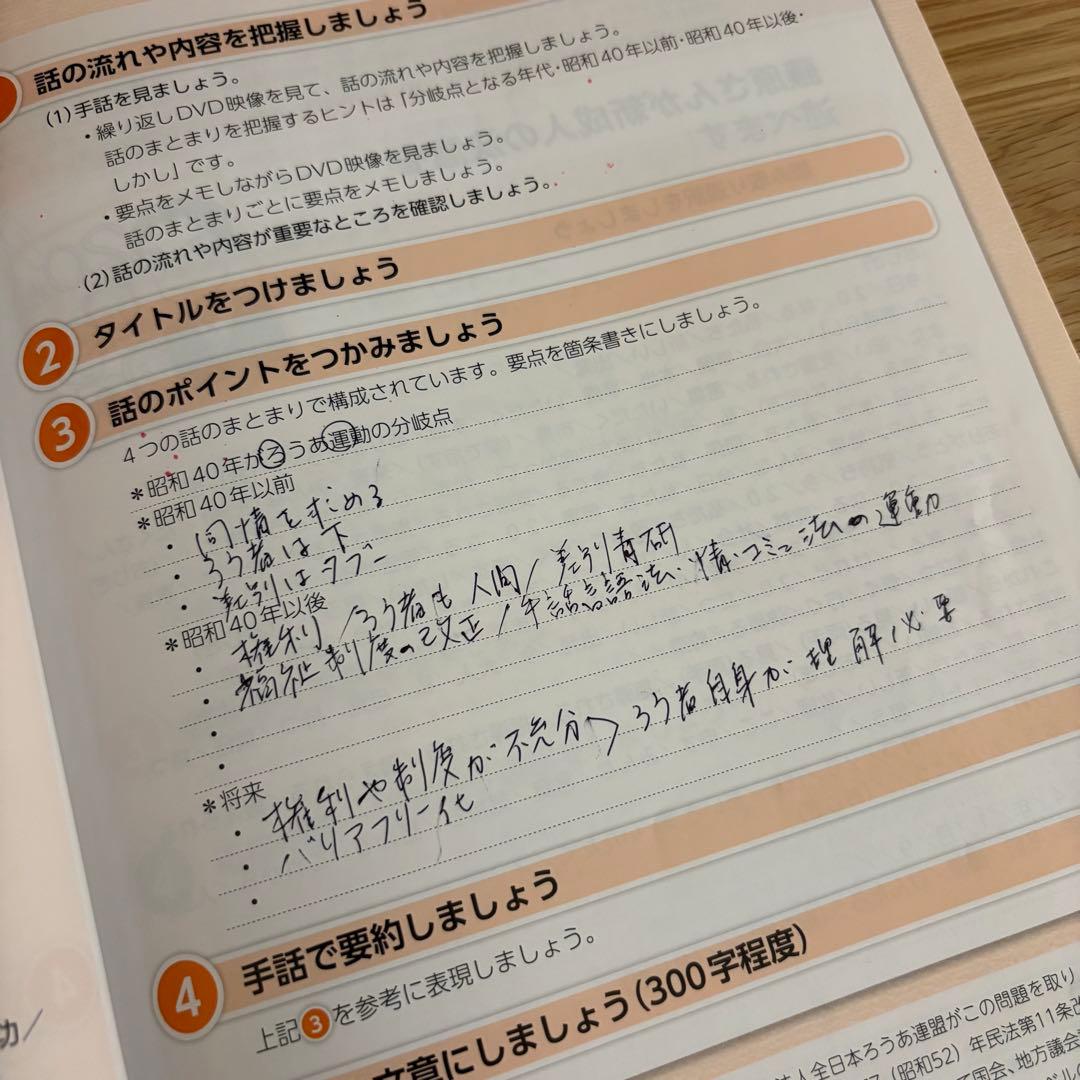 話の流れや内容を把握しましょう
(1)手話を見ましょう。
・繰り返しDVD映像を見て、話の流れや内容を把握しましょう。
話のまとまりを把握するヒントは「分岐点となる年代・昭和40年以前・昭和40年以後・
しかし」です。
・要点をメモしながらDVD映像を見ましょう。
話のまとまりごとに要点をメモしましょう。
(2)話の流れや内容が重要なところを確認しましょう。
2 タイトルをつけましょう
3 話のポイントをつかみましょう
4つの話のまとまりで構成されています。要点を箇条書きにしましょう。
*昭和40年がろうあ運動の分岐点
*昭和40年以前
・同情を求める
・ろう者は下
・差別はタブー
*昭和40年以後
・権利/ろう者も人間/差別青研
・福祉制度の改正/手話言語法・情・コミュ法の運動
・
・
*将来
・権利や制度が不充分 ろう者自身が理解必要
・バリアフリー化
・
4 手話で要約しましょう
上記3を参考に表現しましょう。
文章にしましょう(300字程度)
人全日本ろうあ連盟がこの問題を取り
(昭和52)年民法第11条改
国会、地方議会
力/